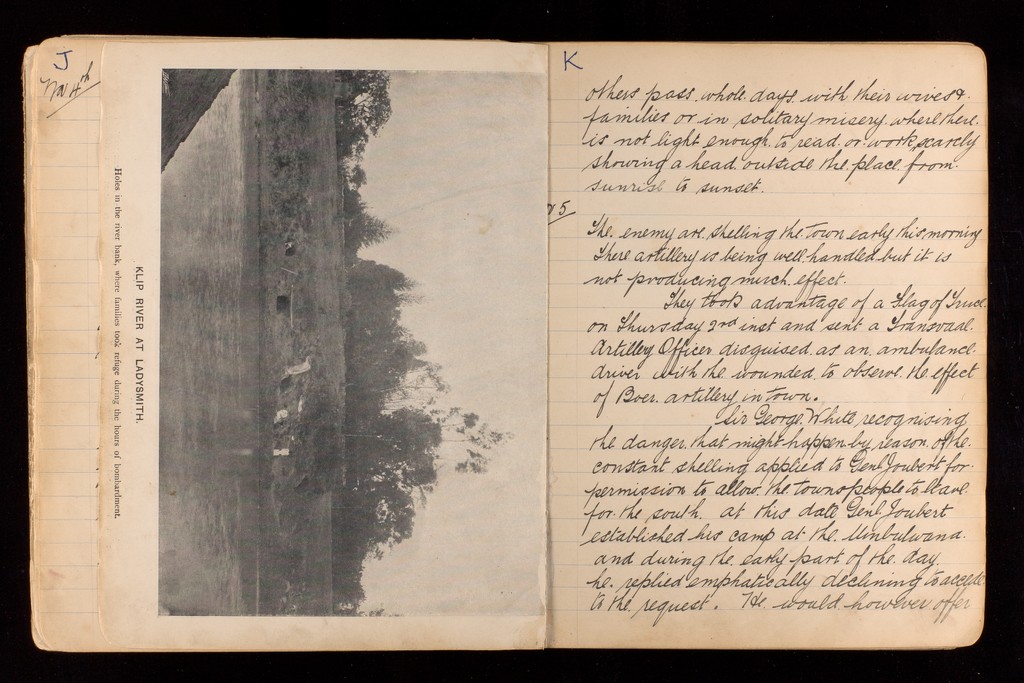 J
Nov 4th
KLIP RIVER AT LADYSMITH.
Holes in the river bank, where families took refuge during the hours of bombardment.
K
others pass whole days with their wives &
families or in solitary misery where there
is not light enough to read or work, scarcely
showing a head outside the place from
sunrise to sunset.
5
The enemy are shelling the town early this morning
There artillery is being well handled but it is
not producing much effect.
They took advantage of a Flag of Truce
on Thursday 2nd inst and sent a Transvaal
Artillery Officer disguised as an ambulance
driver with the wounded to observe the effect
of Boer artillery in town.
Sir George White recognising
the danger that might happen by reason of the
constant shelling applied to Genl Joubert for
permission to allow the townspeople to leave
for the south. at this date Genl Joubert
established his camp at the Umbulwana
and during the early part of the day
he replied emphatically declining to accede
to the request. He would however offer